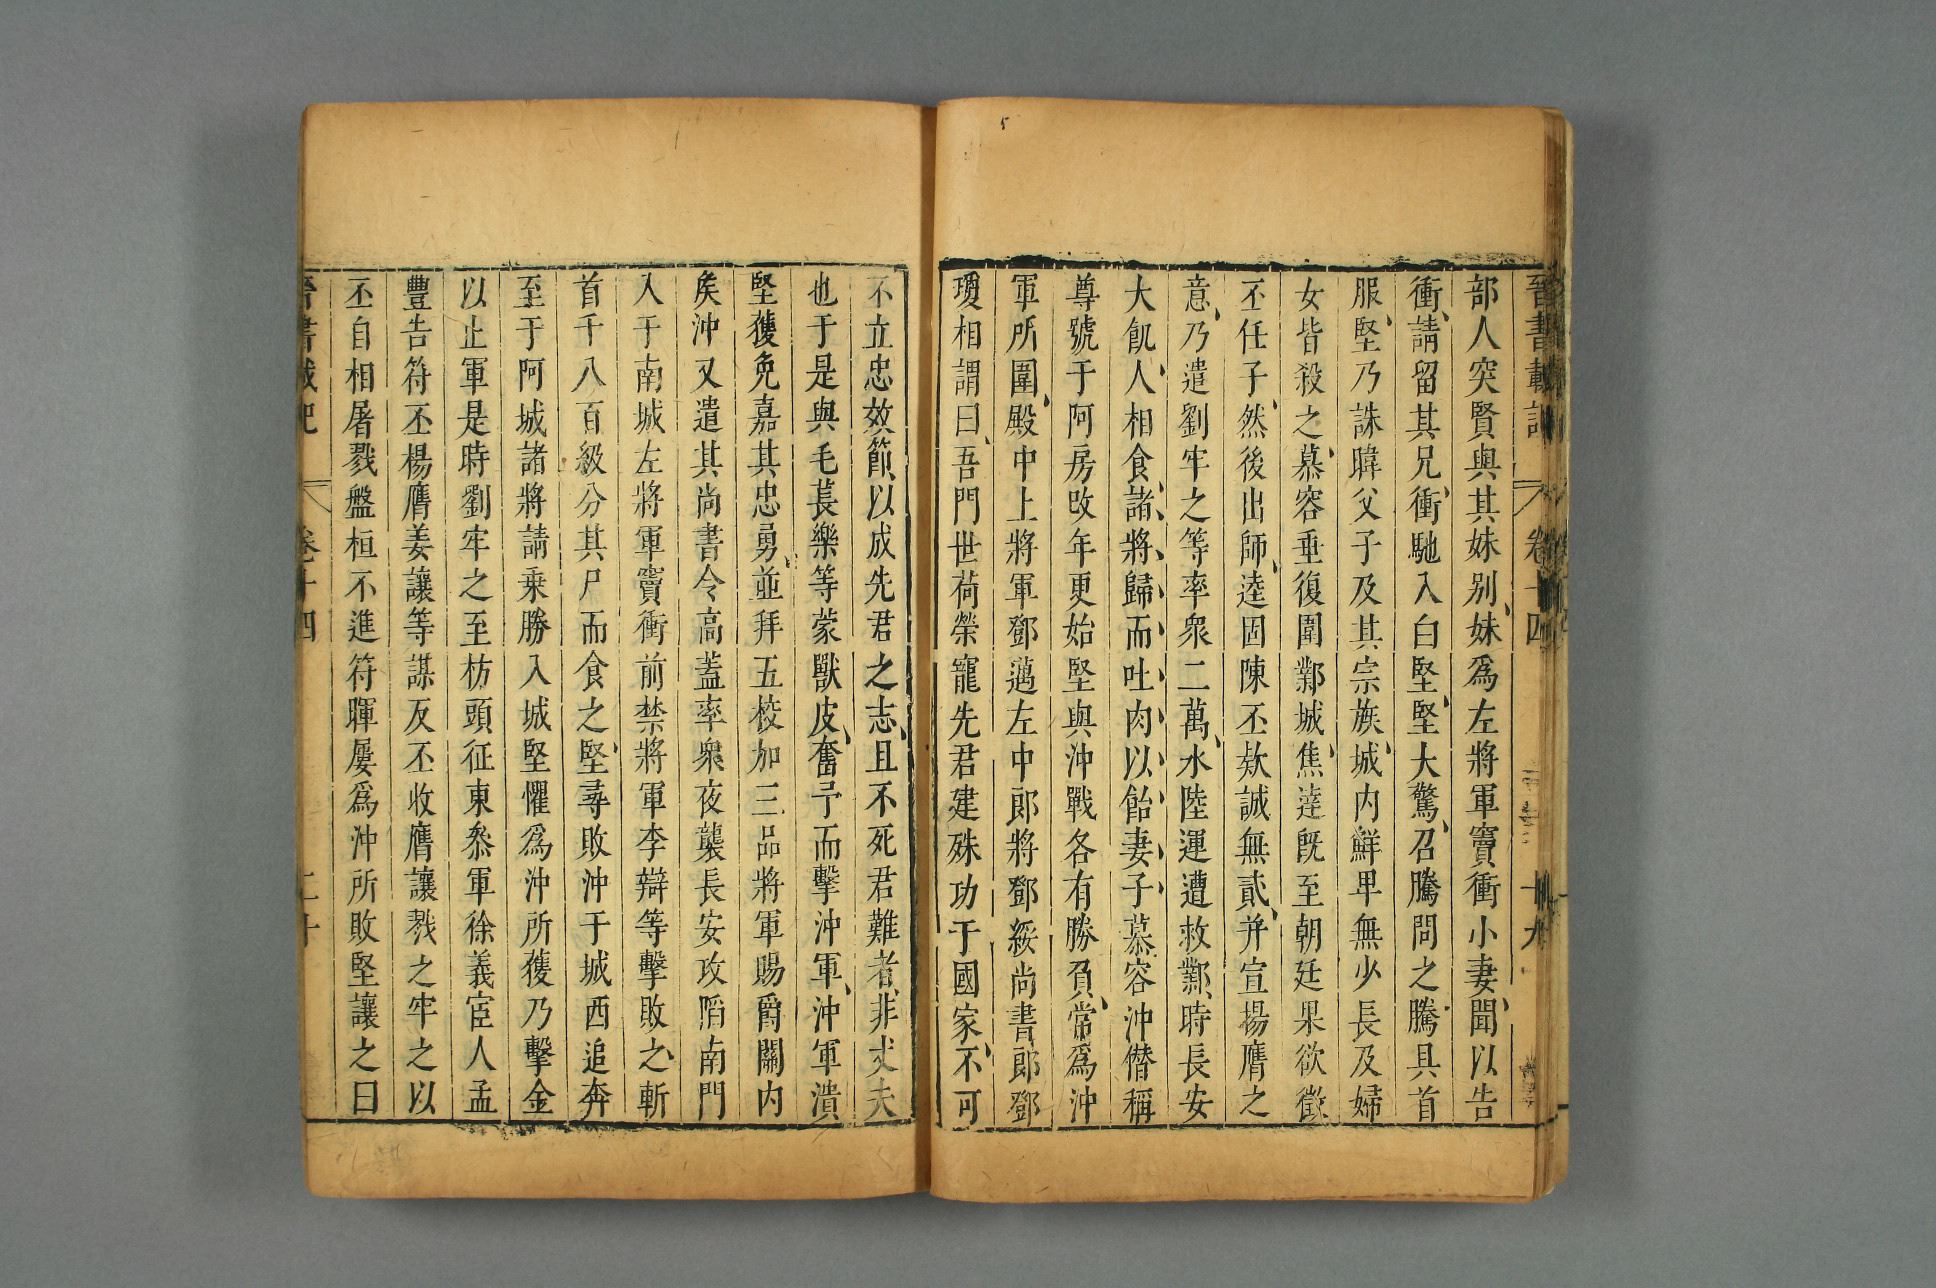 晉書載記 卷十四 十九
部人突賢與其妹別妹爲左將軍竇衝小妻聞以告
衝請留其兄衝馳入白堅堅大驚召騰問之騰具首
服堅乃誅暐父子及其宗族城内鮮卑無少長及婦
女皆殺之慕容垂復圍鄴城焦逵旣至朝廷果欲徵
丕任子然後出師逵固陳丕欵誠無貳并宣楊膺之
意乃遣劉牢之等率衆二萬水陸運遭救鄴時長安
大飢人相食諸將歸而吐肉以飴妻子慕容沖僭稱
尊號于阿房攺年更始堅與沖戰各有勝負常爲沖
軍所圍殿中上將軍鄧邁左中郎將鄧綏尚書郎鄧
瓊相謂曰吾門世荷榮寵先君建殊功于國家不可
不立忠效節以成先君之志且不死君難者非丈夫
也于是與毛萇樂等蒙獸皮奮矛而擊沖軍沖軍潰
堅獲免嘉其忠勇並拜五校加三品將軍賜爵關内
矦沖又遣其尚書令高蓋率衆夜襲長安攻陷南門
入于南城左將軍竇衝前禁將軍李辯等擊敗之斬
首千八百級分其尸而食之堅尋敗沖于城西追奔
至于阿城諸將請乗勝入城堅懼爲沖所獲乃擊金
以止軍是時劉牢之至枋頭征東叅軍徐義宦人孟
豐告符丕楊膺姜讓等謀反丕收膺讓戮之牢之以
丕自相屠戮盤桓不進符暉屢爲沖所敗堅讓之曰
晉書載記 卷十四 二十